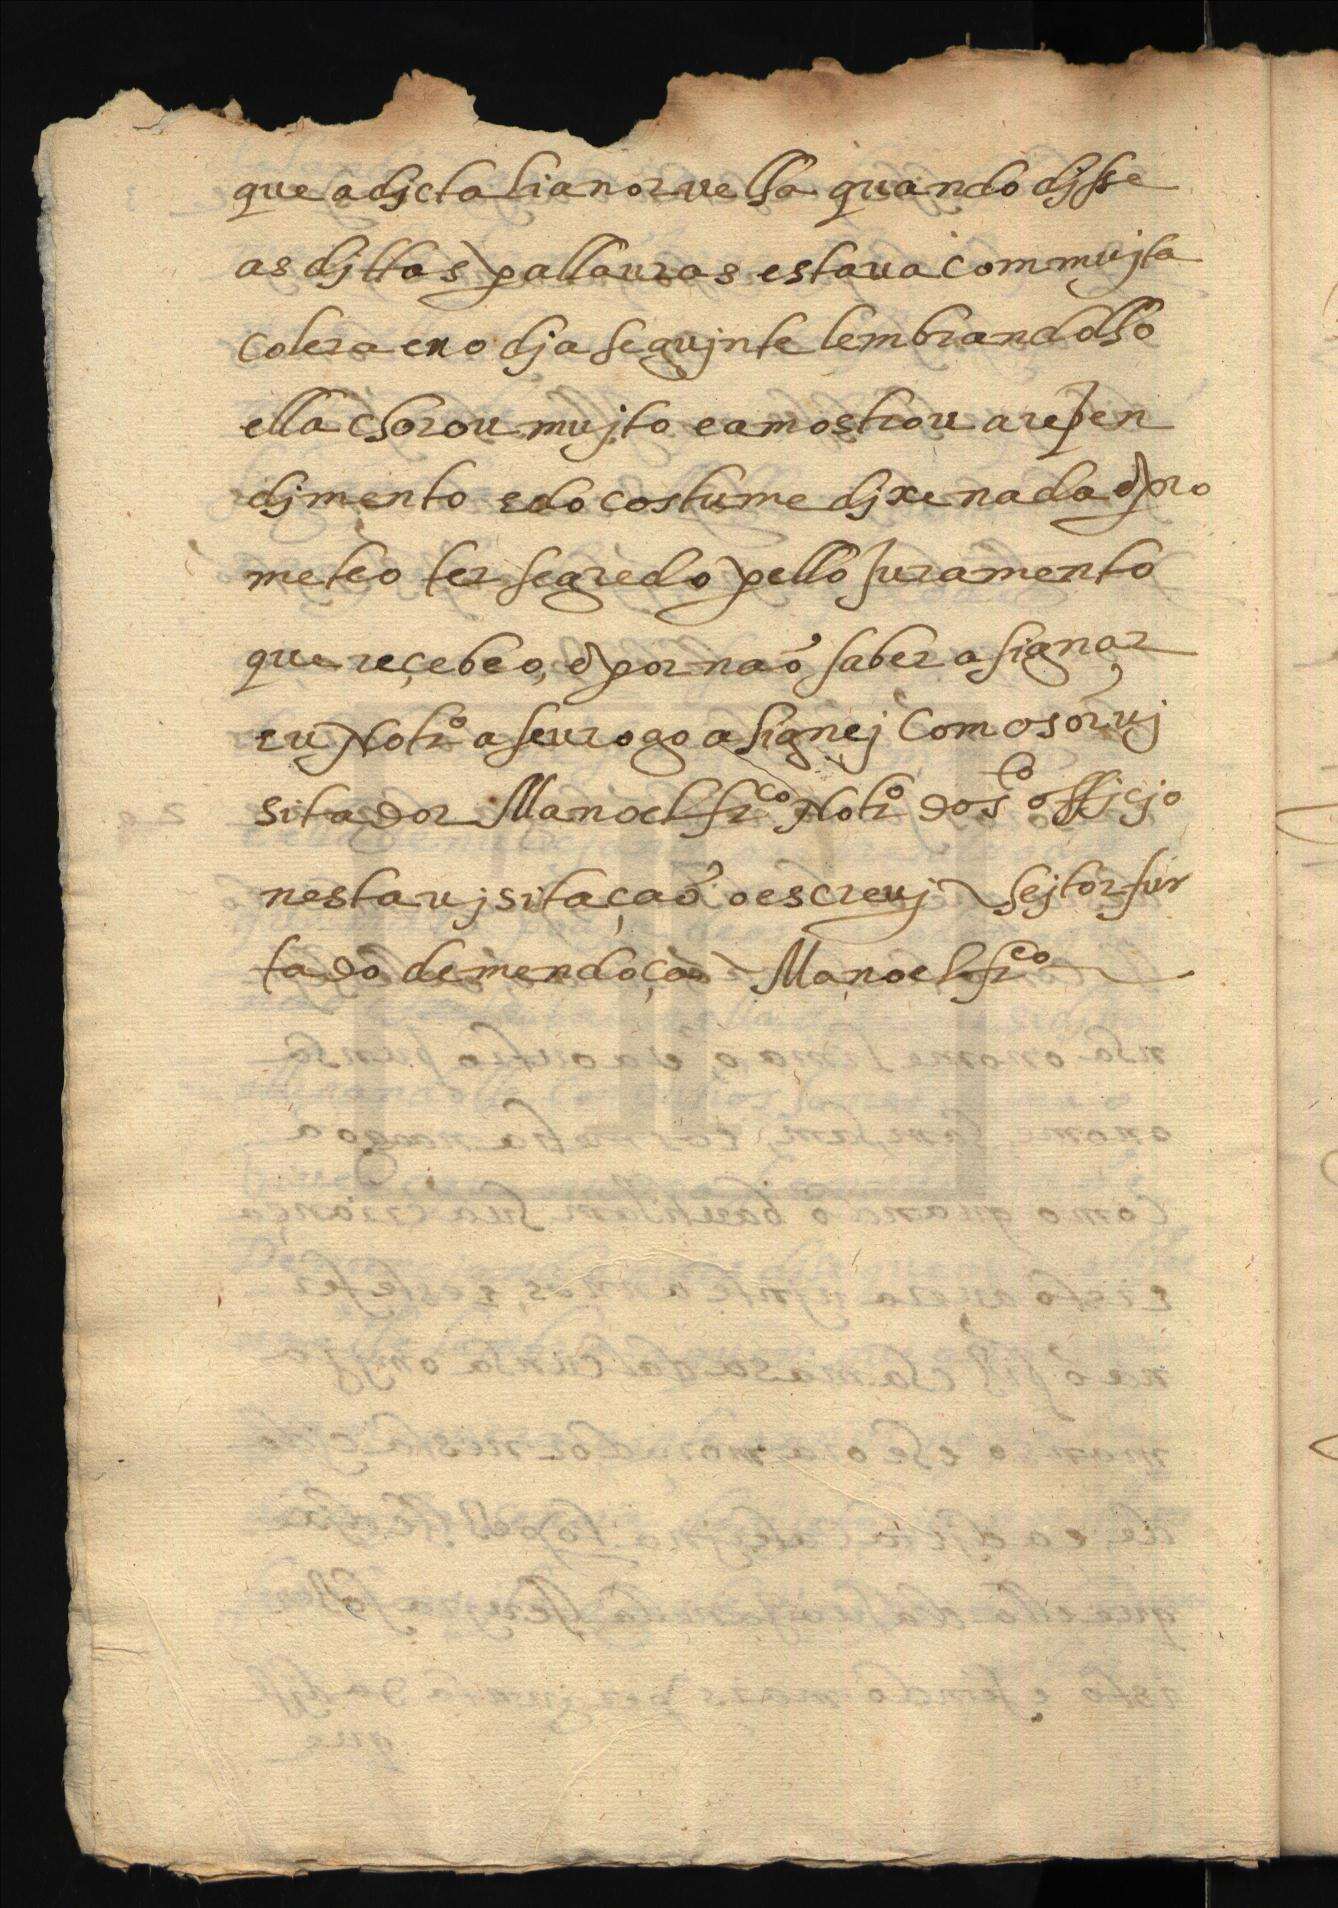 que a djcta lianor velha quando djsse
as djttas pallauras estaua com mujta
colera e no dja segujnte lembrandolho
ella chorou mujto e amostrou arepen
djmento e do costume djxe nada e pro
meteo ter segredo pello juramento
que reçebeo, e por não saber asignar
eu Notrº a seu rogo asignej com o sor vj
sitador Manoel frco Notrº do sto officjo
nesta vjsitação o escreuj hejtor fur
tado de mendoça Manoel frco